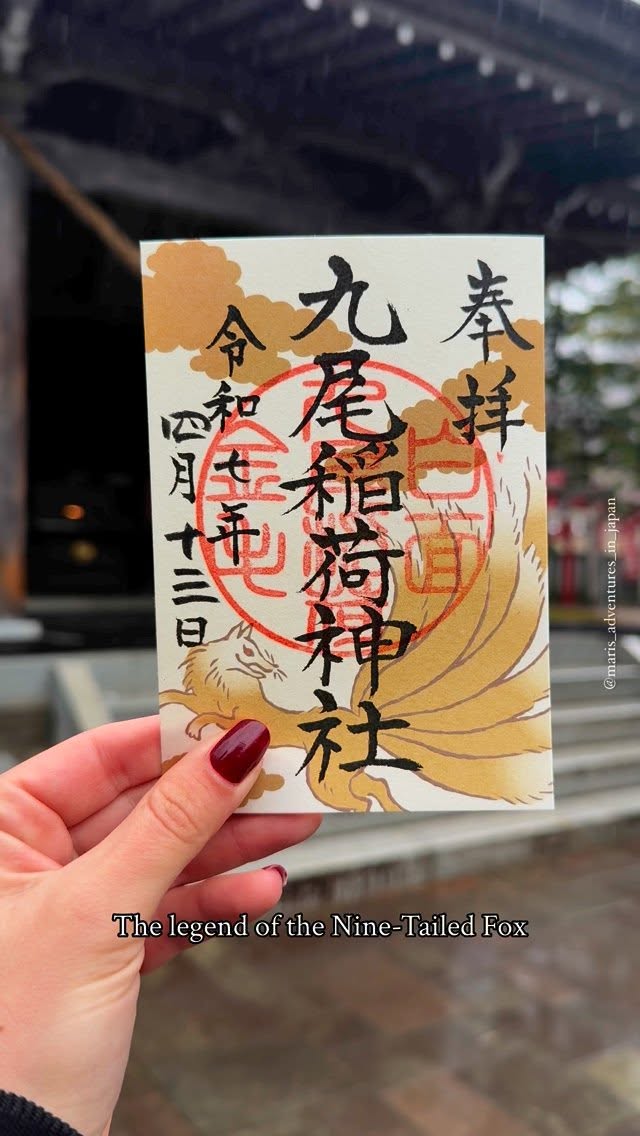 奉拝
九尾稲荷神社
令和七年
四月十三日
The legend of the Nine-Tailed Fox
@maris_adventures_in_japan